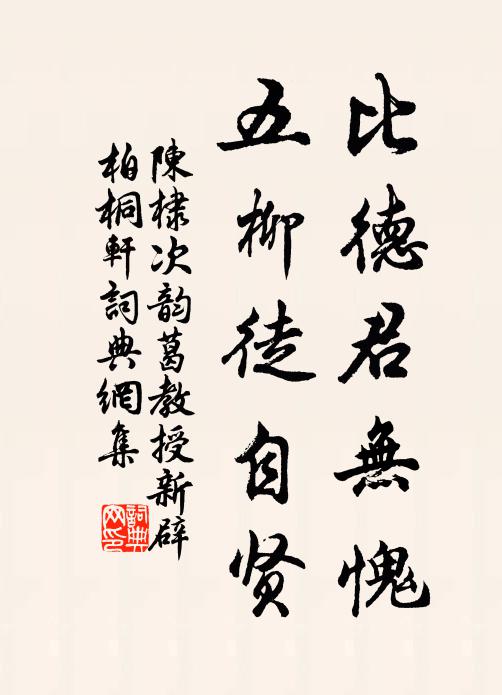 比德君無愧
五柳徒自贤
陳棣次韵葛教授新辟
柏桐軒詞典網集
詞典
网印